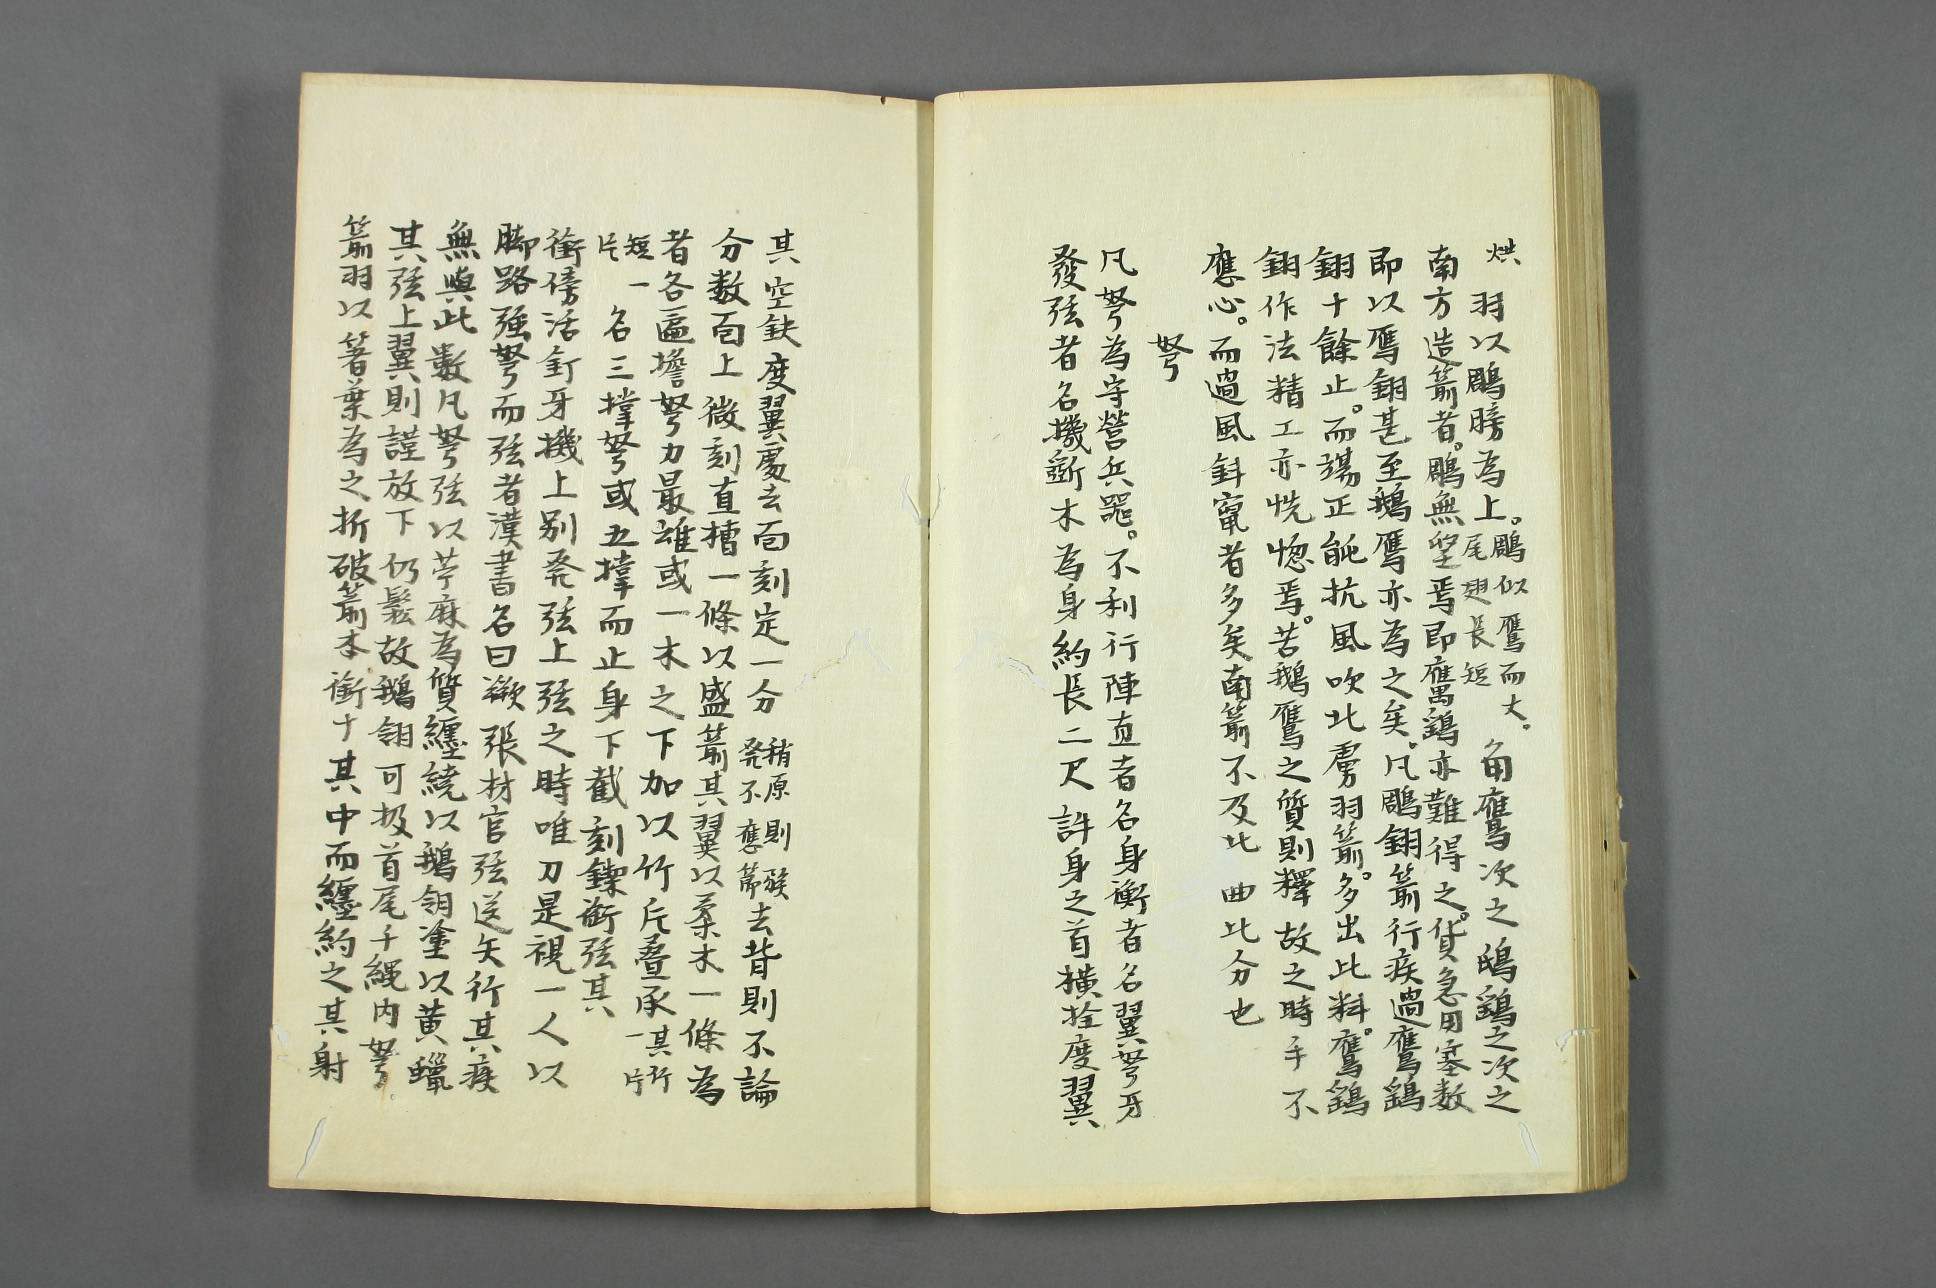 烘
羽以鵰膀為上。鵰似鷹而大。尾翅長短角鷹次之鴟鷂之次之
南方造箭者。鵰無望焉即鷹鷂亦難得之。貨急用塞数
即以鴈翎甚至鵝鴈亦為之矣。凡鵰翎箭行疾過鷹鷂
翎十餘止。而端正能抗風吹北虜羽箭。多出此料。鷹鷂
翎作法精工亦恍惚焉。若鵝鴈之質則釋故之時手不
應心。而過風斜竄者多矣南箭不及比曲比分也
弩
凡弩為守營兵噐。不利行陣直者名身衡者名翼弩牙
發弦者名機斵木為身約長二尺許身之首横拴度翼
其空鈌度翼處去面刻定一分稍原則發不應莭去背則不論
分数面上微刻直槽一條以盛箭其翼以柔木一條為
者各匾擔弩力最雄或一木之下加以竹斤叠承其竹一片
短一片名三撐弩或五撐而止身下截刻鍥銜弦其
衝傍活釘牙機上别発弦上弦之時唯刀是視一人以
腳路强弩而弦者漢書名曰蹶張材官弦送矢行其疾
無與此數凡弩弦以苧麻為質纏繞以鵝翎塗以黄蠟
其弦上翼則謹放下仍鬆故鵝翎可扱首尾千繩内弩
箭羽以箬葉為之折破箭本銜十其中而纏約之其射